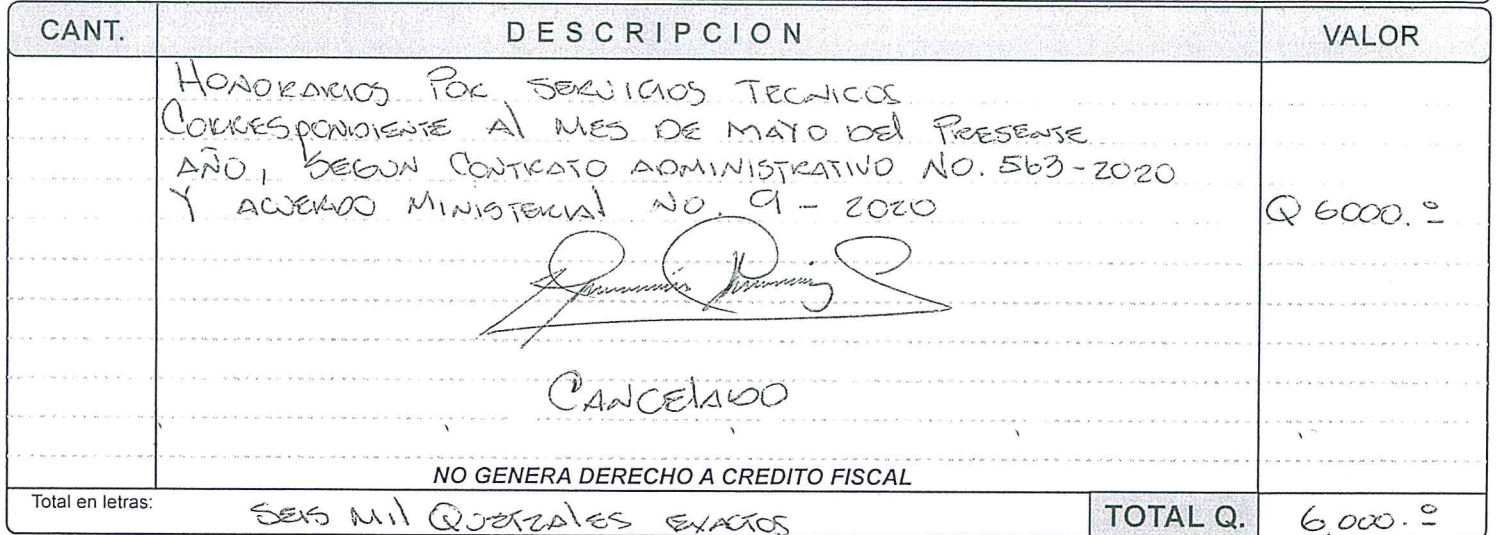 CANT. DESCRIPCION VALOR
HONORARIOS POR SERVICIOS TECNICOS
CORRESPONDIENTE Al MES DE MAYO DEl PRESENTE
AÑO, SEGUN CONTRATO ADMINISTRATIVO NO. 563-2020
Y ACUERDO MINISTERIAl NO. 9-2020 Q 6000.º
CANCElADO
NO GENERA DERECHO A CREDITO FISCAL
Total en letras: SEIS MIl QUETZAlES EXACTOS TOTAL Q. 6,000.º